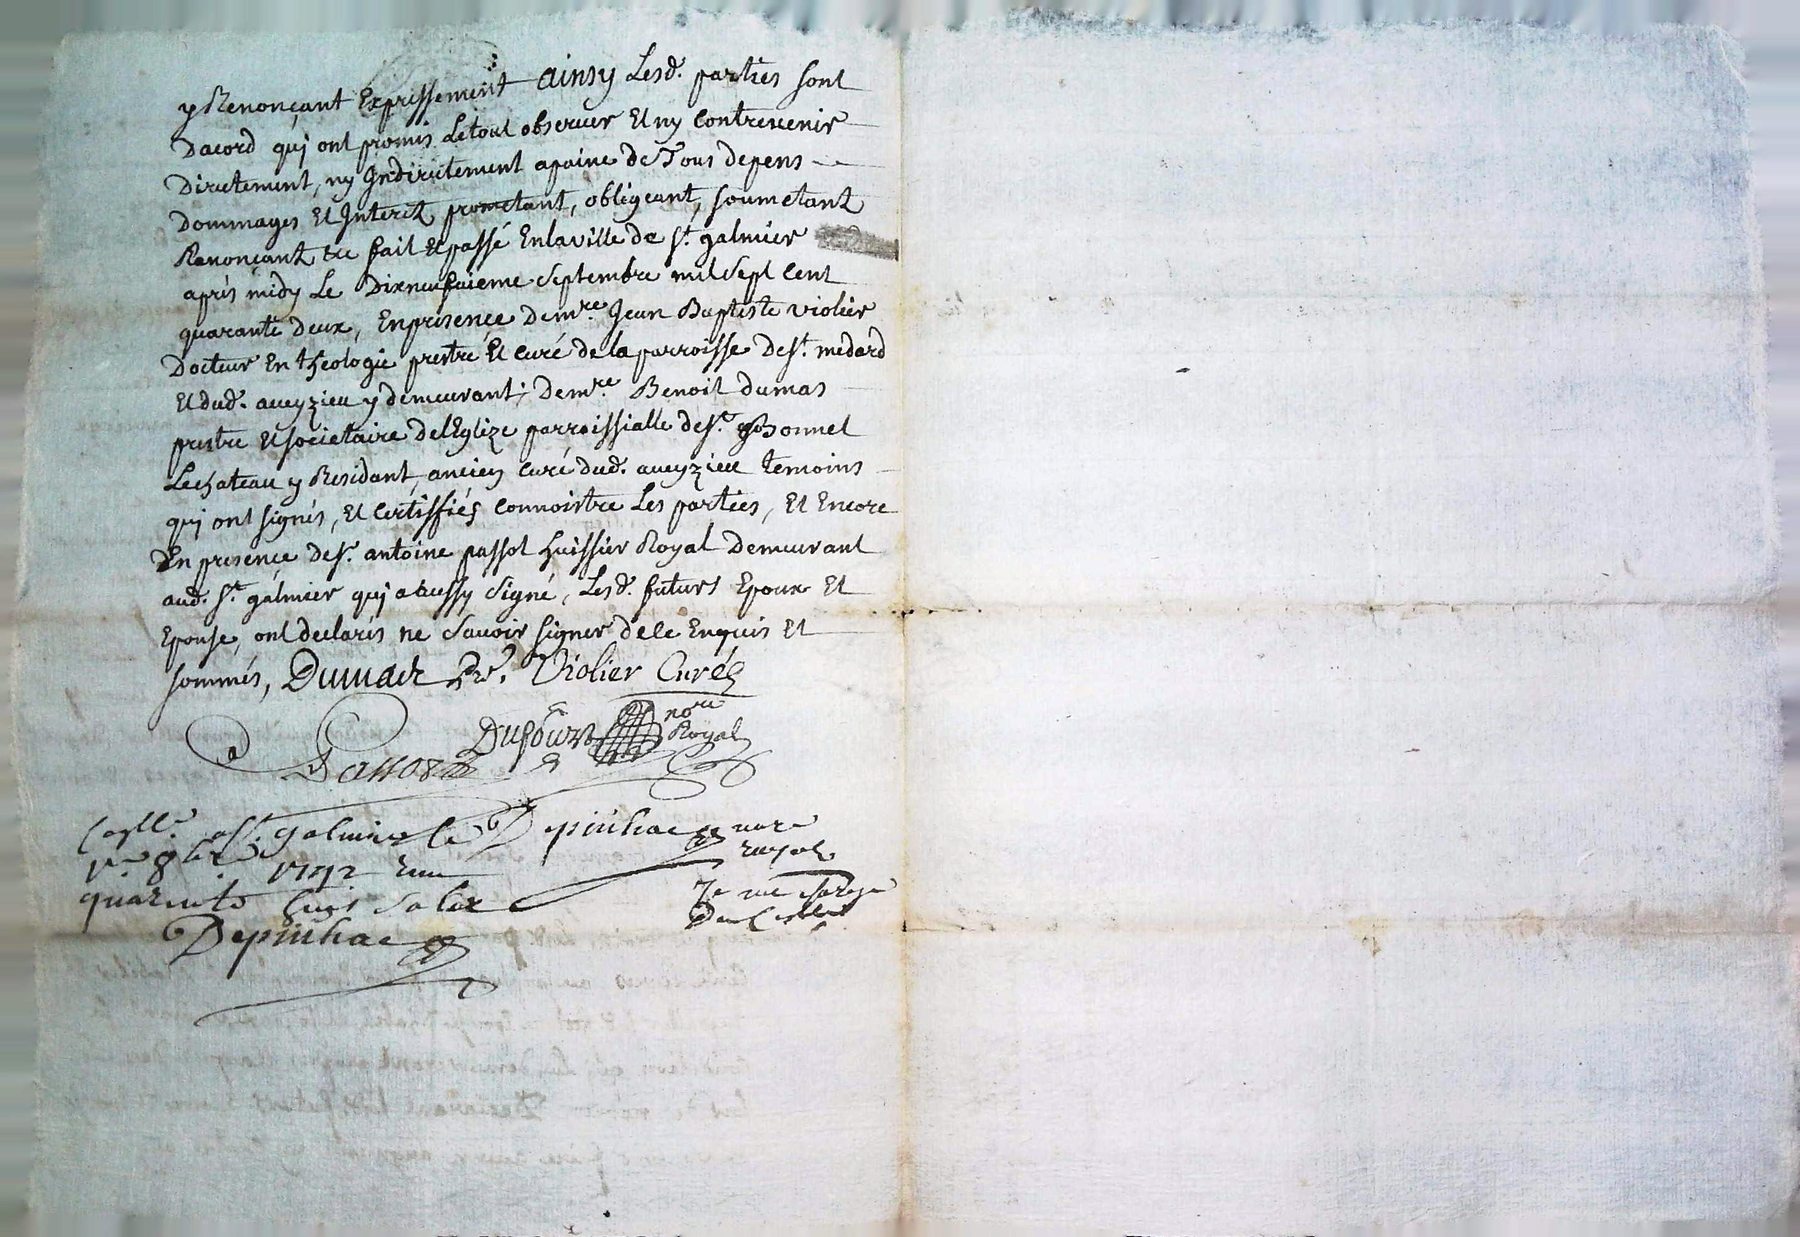 y Renonçant Expressement ainsy Lesd. parties sont
Dacord quj ont promis Letout observer Et ny Contrevenir
Directement, ny Indirectement apaine de Tous depens
Dommages Et Interetz prometant, obligeant, soumetant
Renonçant &c fait Et passé Enlaville de st. galmier
aprés midy Le Dixneufvieme Septembre mil Sept Cent
quarante Deux, Enpresence Demre. Jean Baptiste violier
Docteur En theologie prestre Et curé de la parroisse De st. medard
Et dud. aveyzieu y demeurant; Demre. Benoit dumas
prestre Et societaire delEglize parroissialle de st. Bonnet
Lechateau y Residant, ancien curé dud. aveyzieu temoins
quj ont signés, Et certiffiés connoistre Les parties, Et Encore
En presence de sr. antoine passot huissier Royal Demeurant
aud. st. galmier quj a aussy signé, Lesd. futurs Epoux Et
Epouse, ont declarés ne Savoir signer de ce Enquis Et
sommés, Dumas ptre. Violier Curé
Dufour nore Royal
Passot
a st. galmier le Depinhac nore
1er 8bre. 1742 royal
quarante huit sols
Depinhac